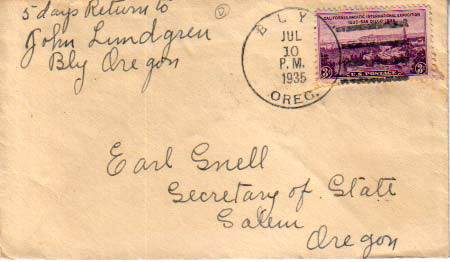 5 days Return to
John Lundgren
Bly Oregon
BLY
JUL
10
P.M.
1935
OREG.
CALIFORNIA PACIFIC INTERNATIONAL EXPOSITION
1935 · SAN DIEGO
3¢ U.S. POSTAGE 3¢
Earl Snell
Secretary of State
Salem
Oregon